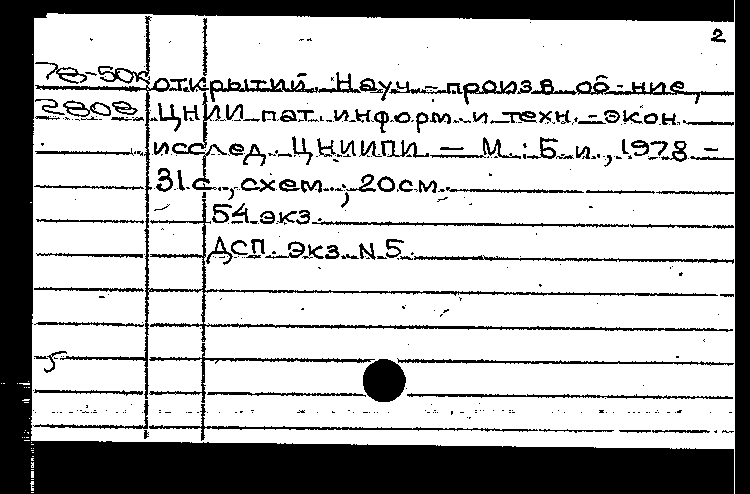 2
78-50к открытий. Науч.-произв. об-ние,
2808 ЦНИИ пат. информ. и техн.-экон.
исслед. ЦНИИПИ. — М.: Б.и., 1978 -
31с., схем.; 20см.
54 экз.
ДСП. Экз. N 5.
5